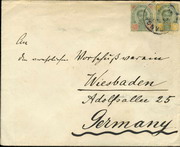 An
den verehrlichen Vorschußverein
Wiesbaden
Adolfsallee 25
Germany